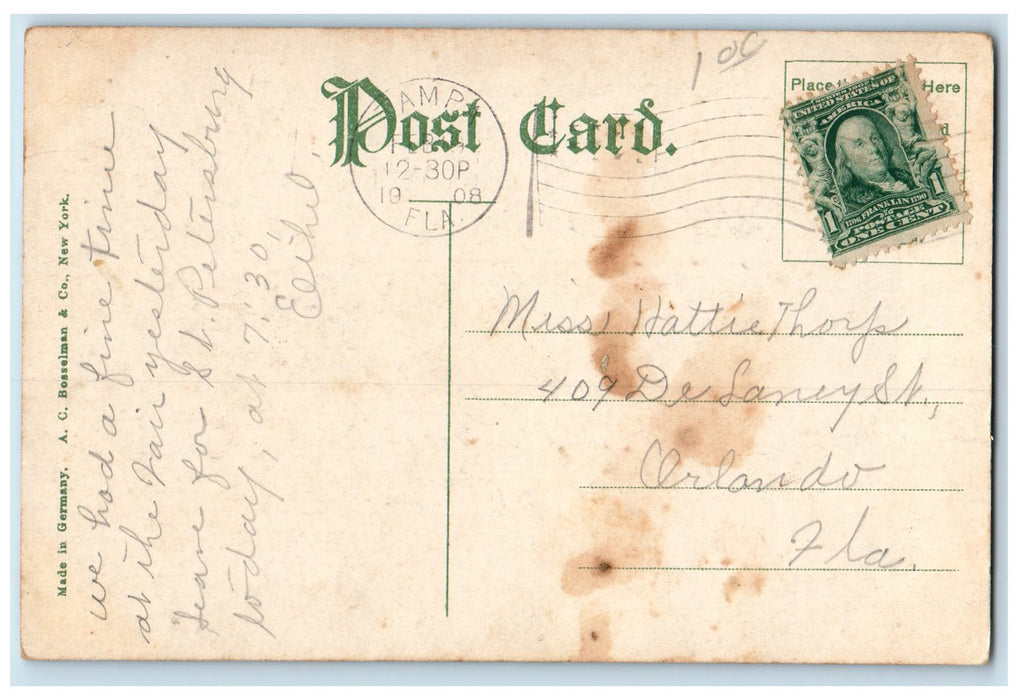 Post Card.
100
Place Here
UNITED STATES OF
AMERICA
1706 FRANKLIN 1790
POSTAGE
ONE CENT
1 1
TAMPA
FEB
12-30P
19 08
FLA.
we had a fine time
at the Fair yesterday
Leave for St. Petersburg
today, at 7:30,
Miss Hattie Thorp
409 De Laney St.,
Orlando
Fla.
Made in Germany. A. C. Bosselman & Co., New York.